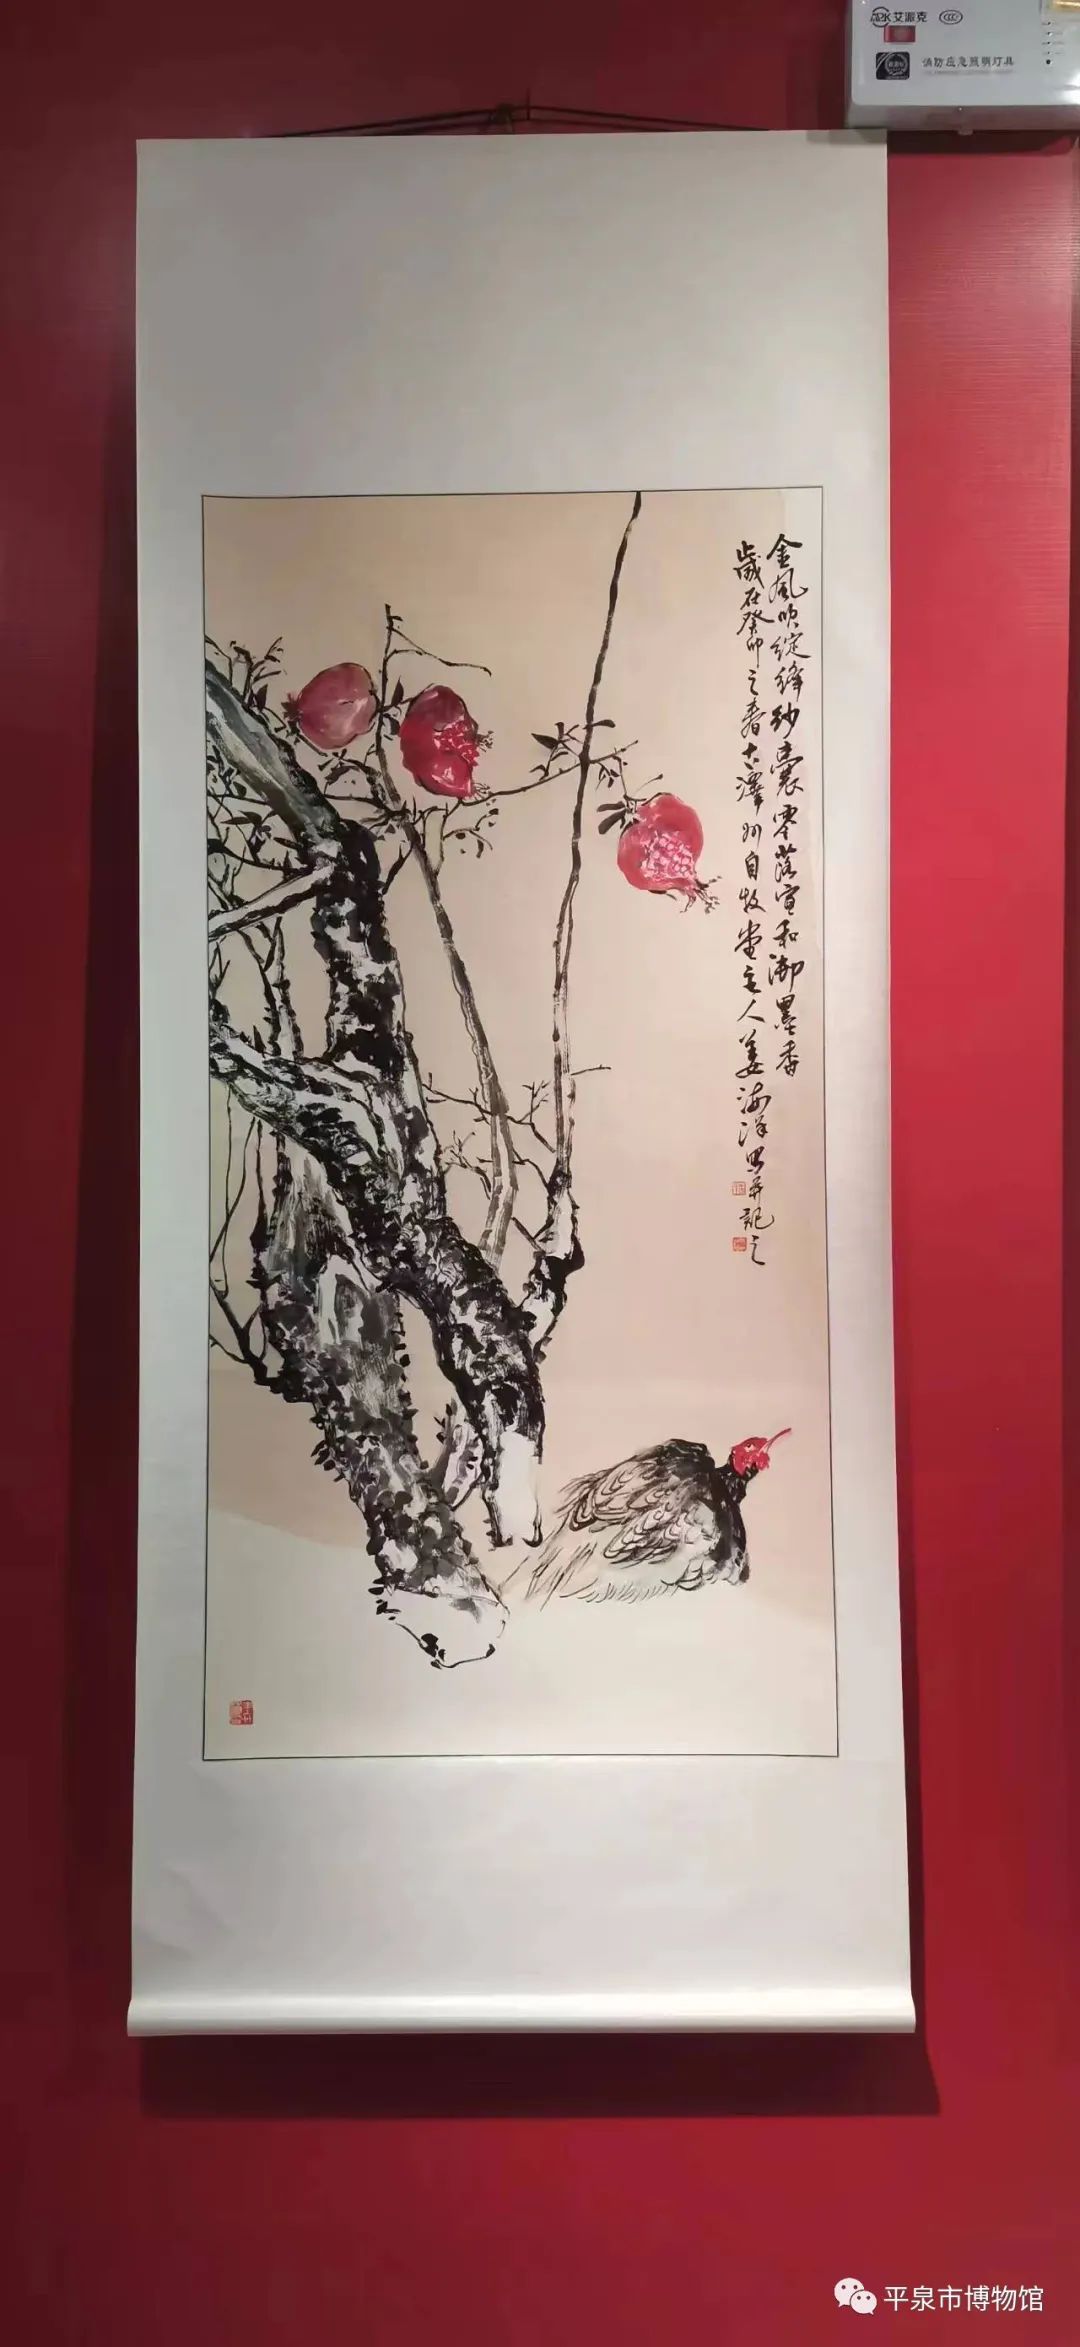 APK 艾派克
消防应急照明灯具
金風吹綻絳紗囊零落宣和御墨香
歲在癸卯之春古澤州自牧堂主人姜海洋畫并記之
平泉市博物馆